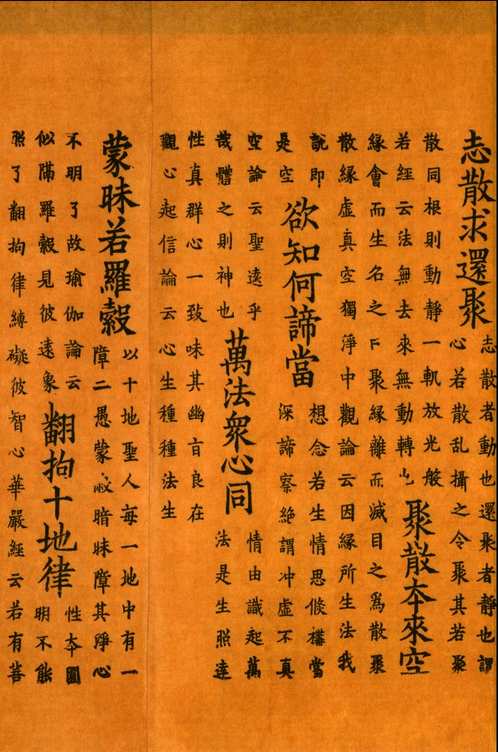 志散求還聚
志散者動也還聚者靜也謂
心若散乱攝之令聚其若聚
散同根則動靜一軌放光般
若經云法無去來無動轉也
聚散本來空
緣會而生名之曰聚緣離而滅目之爲散聚
散緣虛真空獨淨中觀論云因緣所生法我
說即
是空
欲知何諦當
想念若生情思倏當
深諦察絶謂冲虛不真
空論云聖遠乎
哉體之則神也
萬法衆心同
情由識起萬
法是生照達
性真群心一致味其幽旨良在
觀心起信論云心生種種法生
蒙昧若羅縠
以十地聖人每一地中有一
障二愚蒙蔽暗昧障其淨心
不明了故瑜伽論云
似隔羅縠見彼遠象
翻拘十地律
性本圓
明不能
照了翻拘律縛礙彼智心華嚴經云若有善